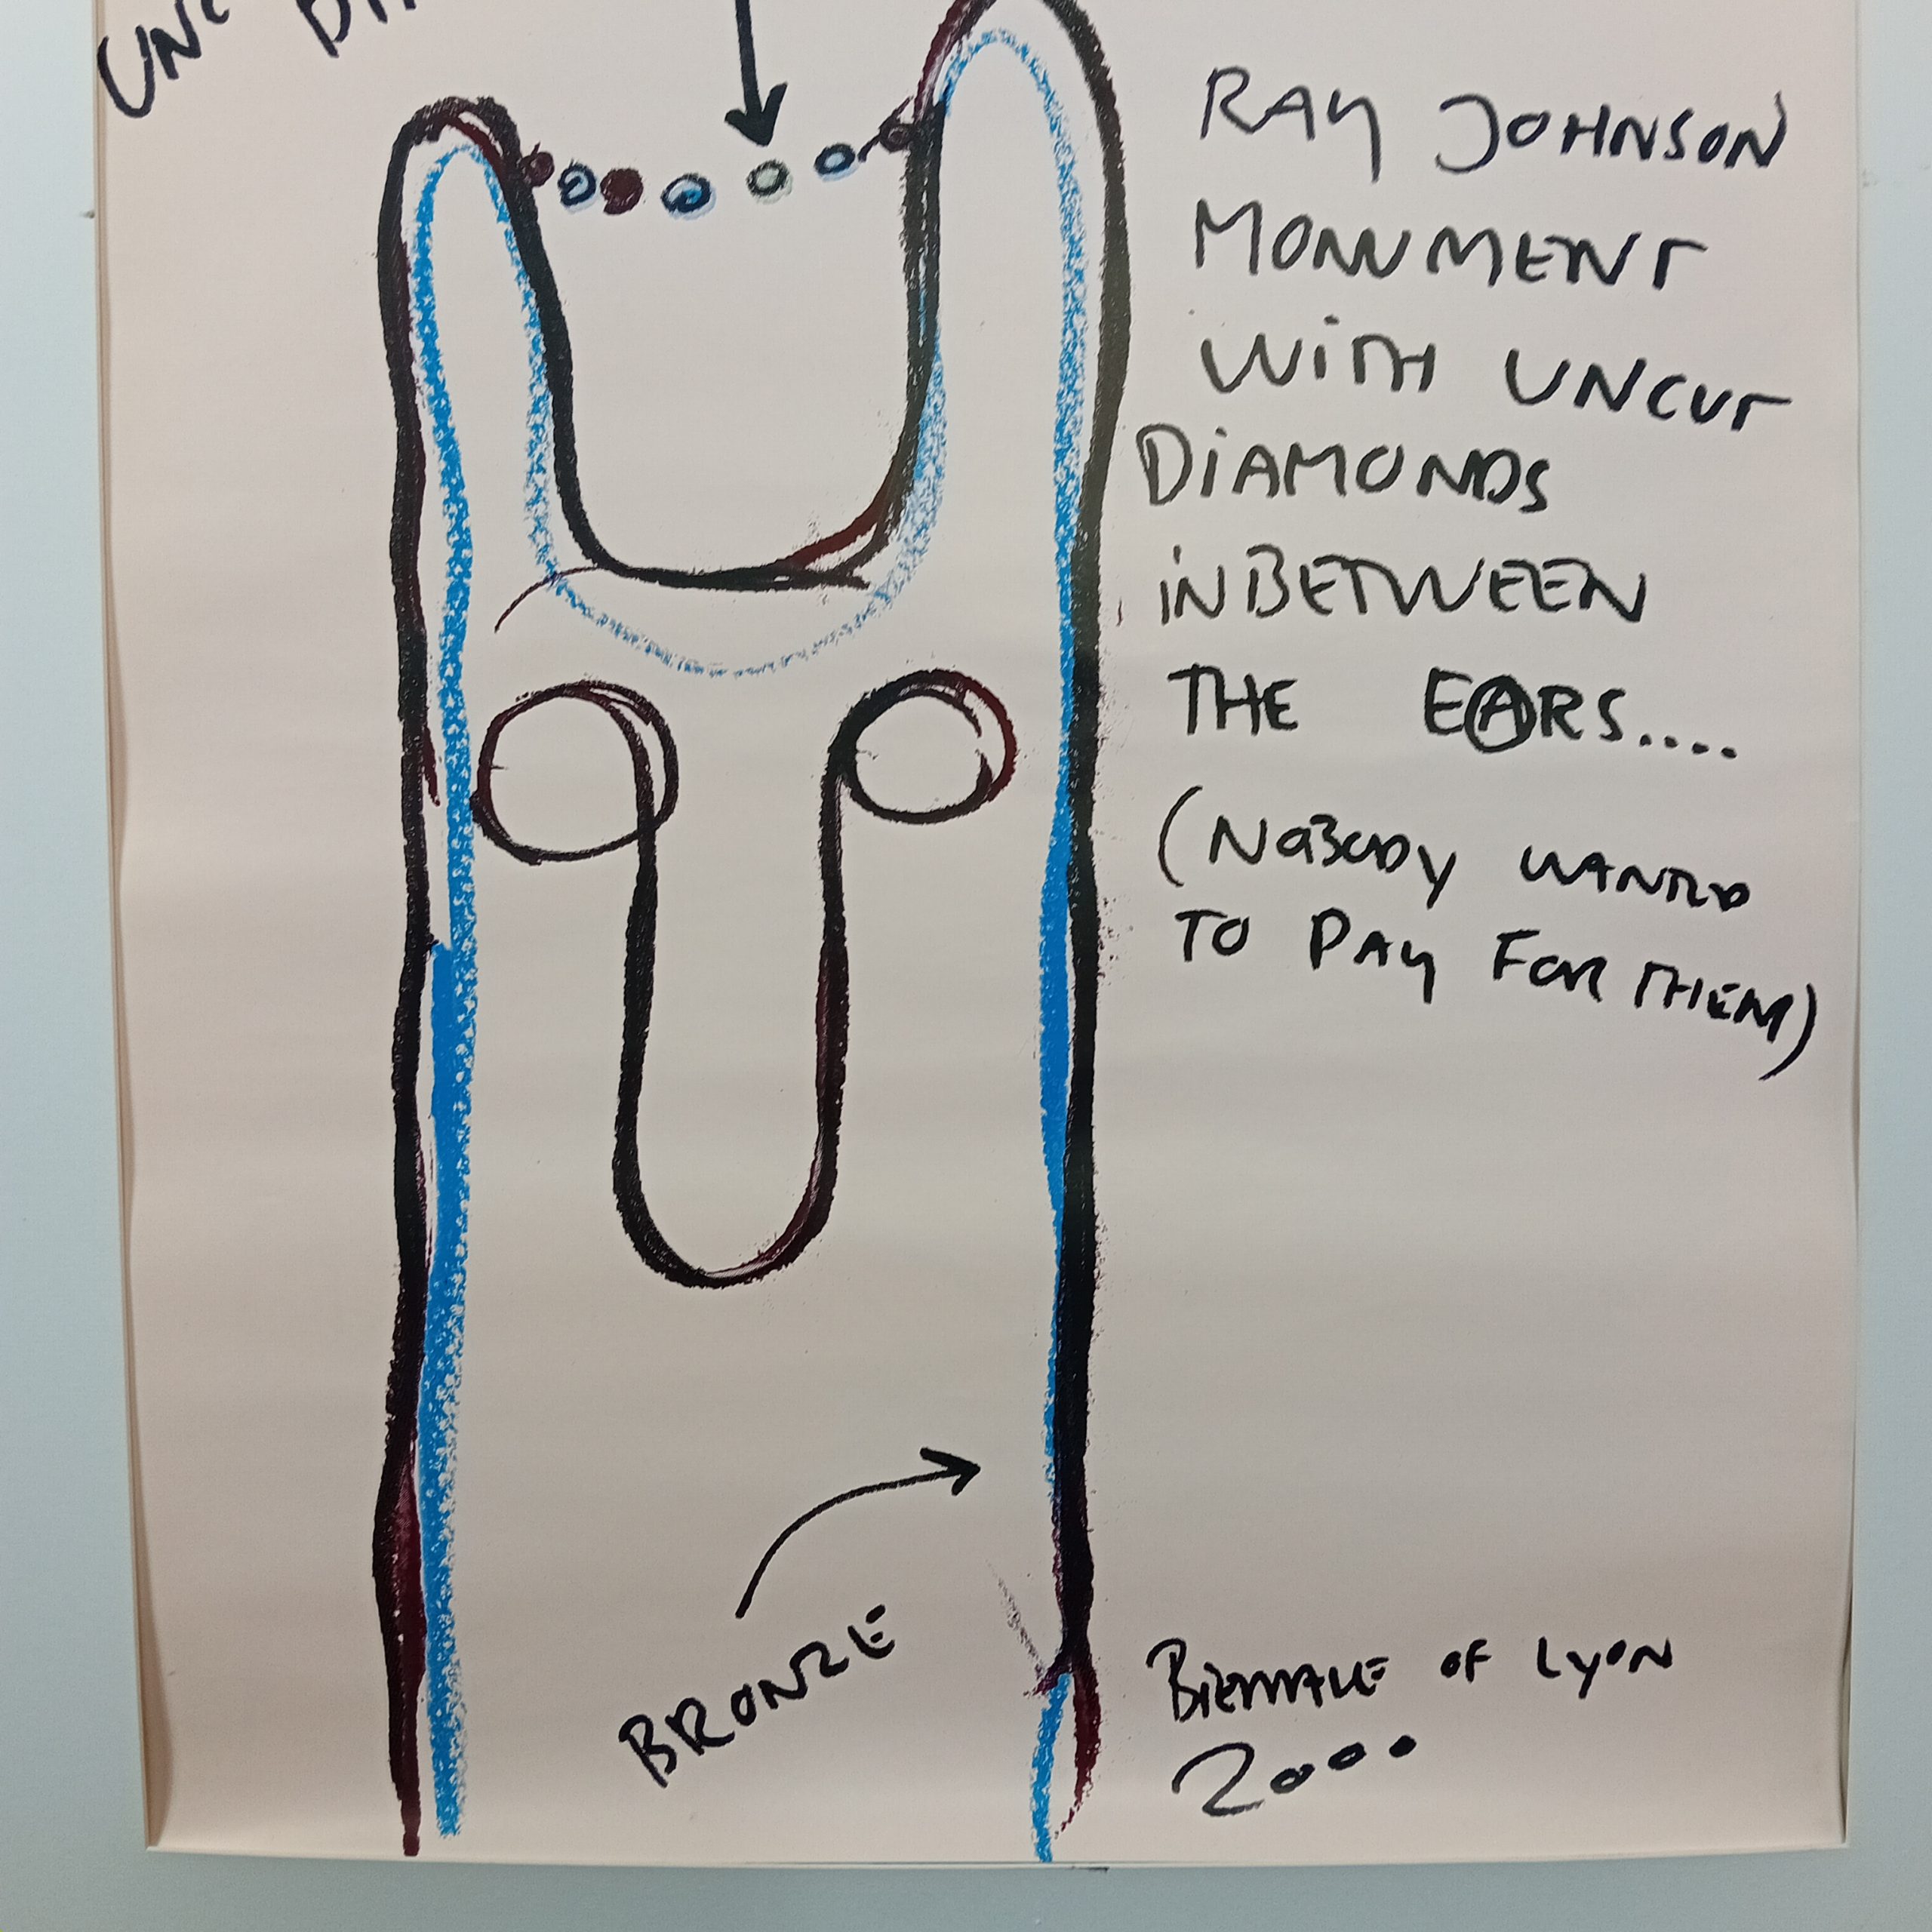 UNC
DI
RAY JOHNSON
MONUMENT
WITH UNCUT
DIAMONDS
INBETWEEN
THE EARS....
(NOBODY WANTED
TO PAY FOR THEM)
BRONZE
BIENNALE OF LYON
2000